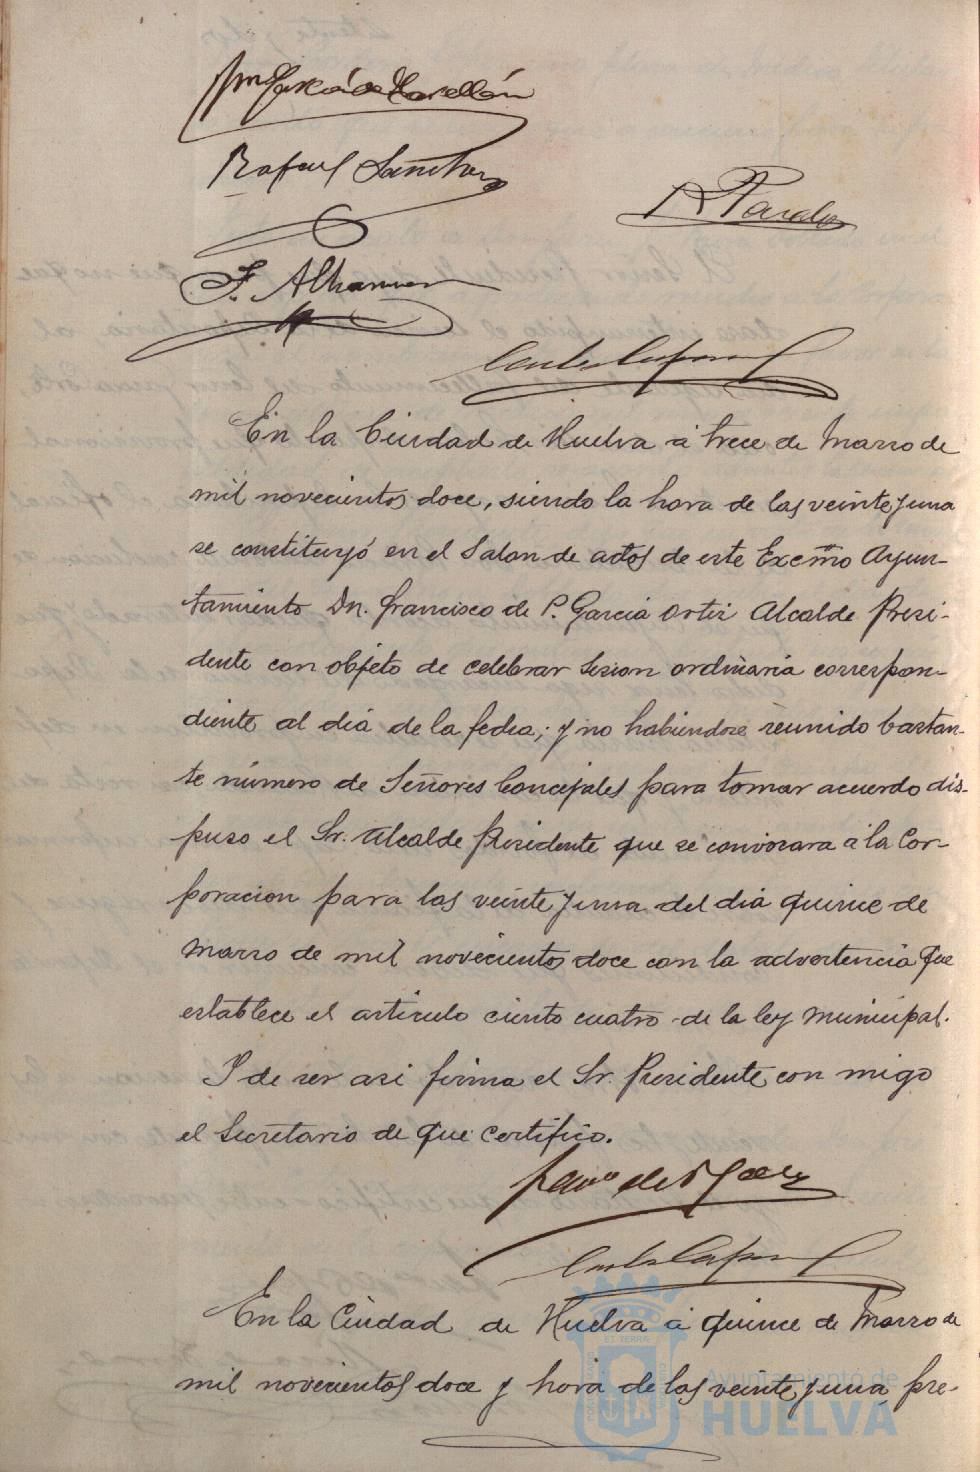 Rafael Sanchez
En la Ciudad de Huelva á trece de Marzo de
mil novecientos doce, siendo la hora de las veinte y una
se constituyó en el Salon de actos de este Excmo Ayun-
tamiento Dn. Francisco de P. Garcia Ortiz Alcalde Presi-
dente con objeto de celebrar sesion ordinaria correspon-
diente al dia de la fecha; y no habiendose reunido bastan-
te número de Señores Concejales para tomar acuerdo dis-
puso el Sr. Alcalde Presidente que se convocara á la Cor-
poracion para las veinte y una del dia quince de
Marzo de mil novecientos doce con la advertencia que
establece el articulo ciento cuatro de la ley municipal.
Y de ser asi firma el Sr. Presidente con migo
el Secretario de que certifico.
En la Ciudad de Huelva á quince de Marzo de
mil novecientos doce y hora de las veinte y una, pre-
Ayuntamiento de
HUELVA